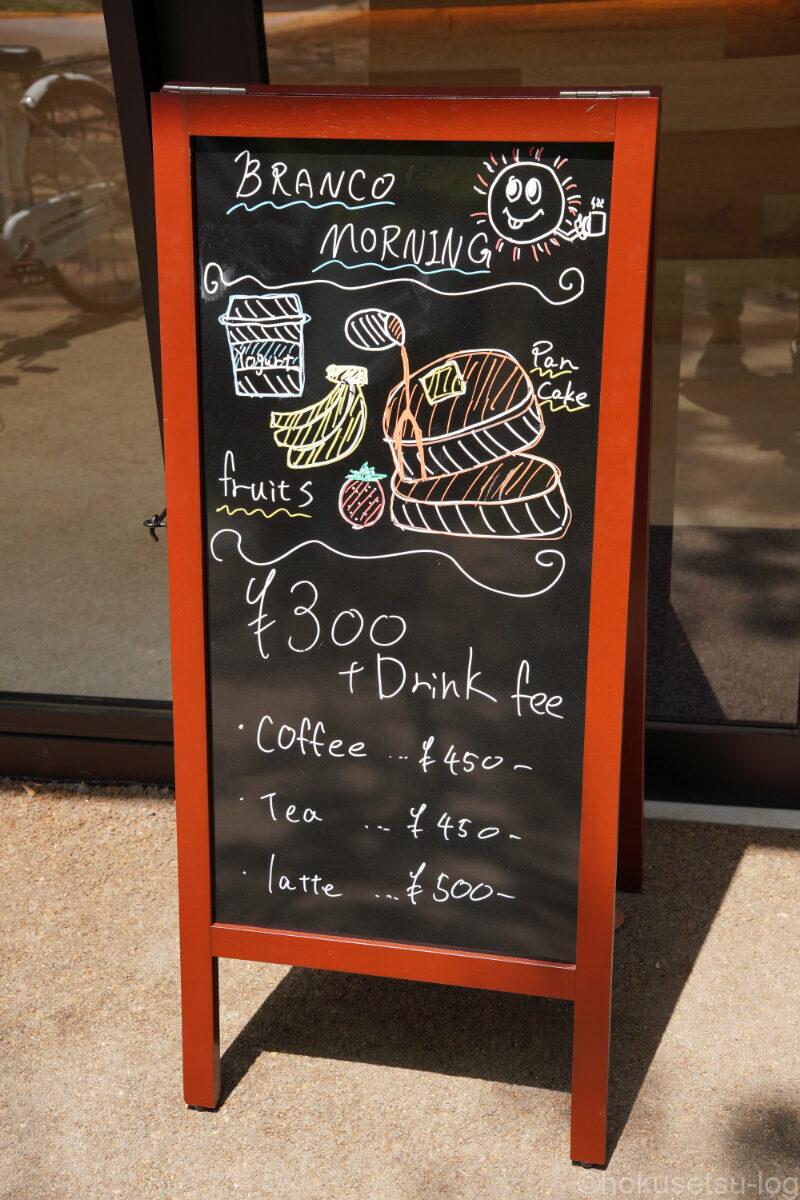 BRANCO
MORNING
Yogurt
Pan
Cake
fruits
¥300
+Drink fee
・Coffee ...¥450-
・Tea ...¥450-
・latte ...¥500-
©hokusetsu-log